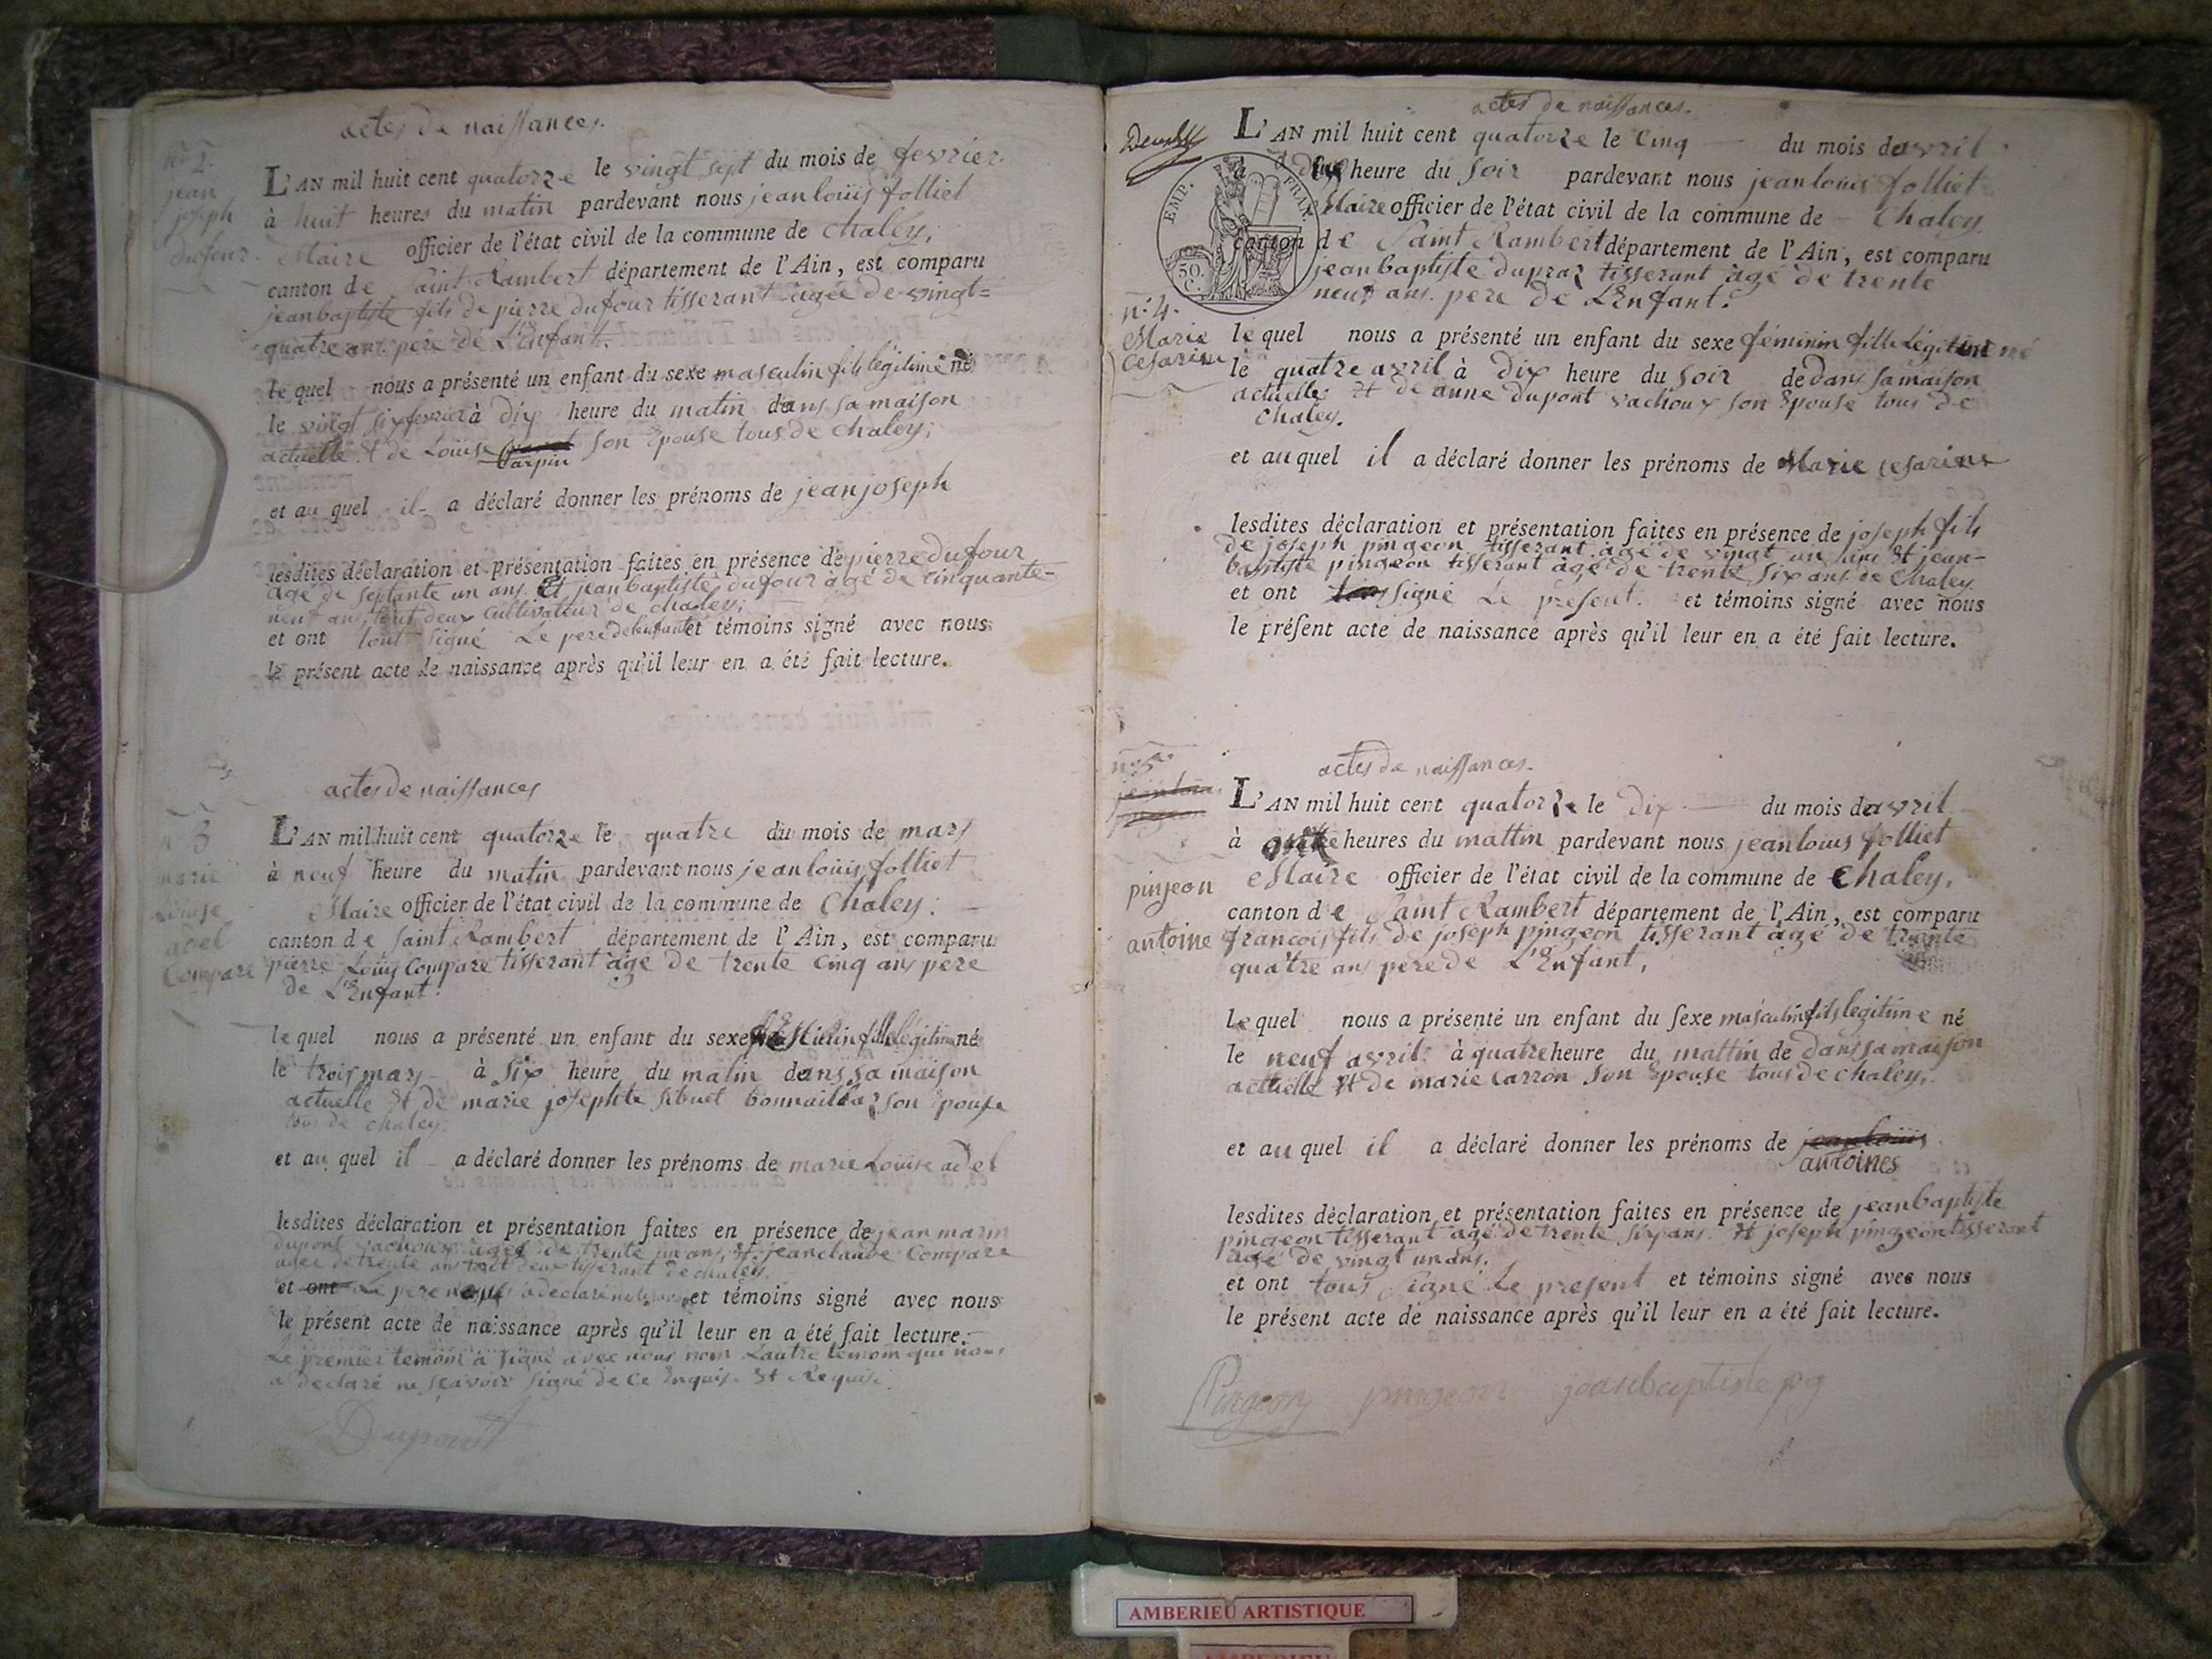 actes de naissances.
n° 2.
jean
joseph
dufour.
L'AN mil huit cent quatorze le vingt sept du mois de fevrier
à huit heures du matin pardevant nous jean louis folliet
Maire officier de l'état civil de la commune de Chaley,
canton de Saint Rambert département de l'Ain, est comparu
jean baptiste fils de pierre dufour tisserant agée de vingt=
quatre ans pere de L'Enfant.
le quel nous a présenté un enfant du sexe masculin fils légitime né
le vingt six fevrier à dix heure du matin dans sa maison
actuelle et de Louise Carpin son Epouse tous de Chaley;
et au quel il a déclaré donner les prénoms de jean joseph
lesdites déclaration et présentation faites en présence de pierre dufour
agé de septante un ans. Et jean baptiste dufour agé de cinquante-
neuf ans tout deux cultivateur de chaley;
et ont tout signé Le pere de lenfant et témoins signé avec nous
le présent acte de naissance après qu'il leur en a été fait lecture.
actes de naissances
n° 3
marie
Louise
adel
Compare
L'AN mil huit cent quatorze le quatre du mois de mars
à neuf heure du matin pardevant nous jean louis folliet
Maire officier de l'état civil de la commune de Chaley.
canton de Saint Rambert département de l'Ain, est comparu
pierre Louis Compare tisserant age de trente cinq ans pere
de L'Enfant.
le quel nous a présenté un enfant du sexe féminin fille légitime né
le trois mars à six heure du matin dans sa maison
actuelle et de marie josephte sibuet bonnaillaz son Epouse
tous de chaley.
et au quel il a déclaré donner les prénoms de marie Louise adel
lesdites déclaration et présentation faites en présence de jean marin
dupont vachoux agée de trente un ans, et jean claude Compare
agee de trente ans tout deux tisserant de chaley.
et ont Le pere a declaré et témoins signé avec nous
le présent acte de naissance après qu'il leur en a été fait lecture.
Le premier temoin a signé avec nous nom Lautre temoin qui nous
a declaré ne scavoir signé de ce Enquis et Requis.
Dupont
actes de naissances.
EMP. FRAN.
50. C.
n° 4.
Marie
Cesarine
L'AN mil huit cent quatorze le cinq du mois d'avril
à heure du soir pardevant nous jean louis folliet
Maire officier de l'état civil de la commune de Chaley
canton de Saint Rambert département de l'Ain, est comparu
jean baptiste dupraz tisserant agé de trente
neuf ans. pere de L'Enfant.
le quel nous a présenté un enfant du sexe féminin fille légitime né
le quatre avril à dix heure du soir de dans sa maison
actuelle et de anne dupont vachoux son Epouse tous de
Chaley.
et au quel il a déclaré donner les prénoms de Marie Cesarine
lesdites déclaration et présentation faites en présence de joseph fils
de joseph pingeon tisserant agé de vingt un ans et jean-
baptiste pingeon tisserant agé de trente six ans de Chaley
et ont tous signé Le présent. et témoins signé avec nous
le présent acte de naissance après qu'il leur en a été fait lecture.
actes de naissances.
n° 5
pinjeon
antoine
L'AN mil huit cent quatorze le dix du mois d'avril
à heures du mattin pardevant nous jean louis folliet
Maire officier de l'état civil de la commune de Chaley,
canton de Saint Rambert département de l'Ain, est comparu
francois fils de joseph pingeon tisserant agé de trente
quatre ans pere de L'Enfant,
Le quel nous a présenté un enfant du sexe masculin fils legitime né
le neuf avril à quatre heure du mattin de dans sa maison
actuelle et de marie Carron son Epouse tous de chaley,
et au quel il a déclaré donner les prénoms de jean louis
antoines
lesdites déclaration et présentation faites en présence de jean baptiste
pingeon tisserant agé de trente six ans. et joseph pingeon tisserant
agé de vingt un ans.
et ont tous signé Le present et témoins signé avec nous
le présent acte de naissance après qu'il leur en a été fait lecture.
Pingeon pingeon jean baptiste pg
AMBERIEU ARTISTIQUE
AMBERIEU